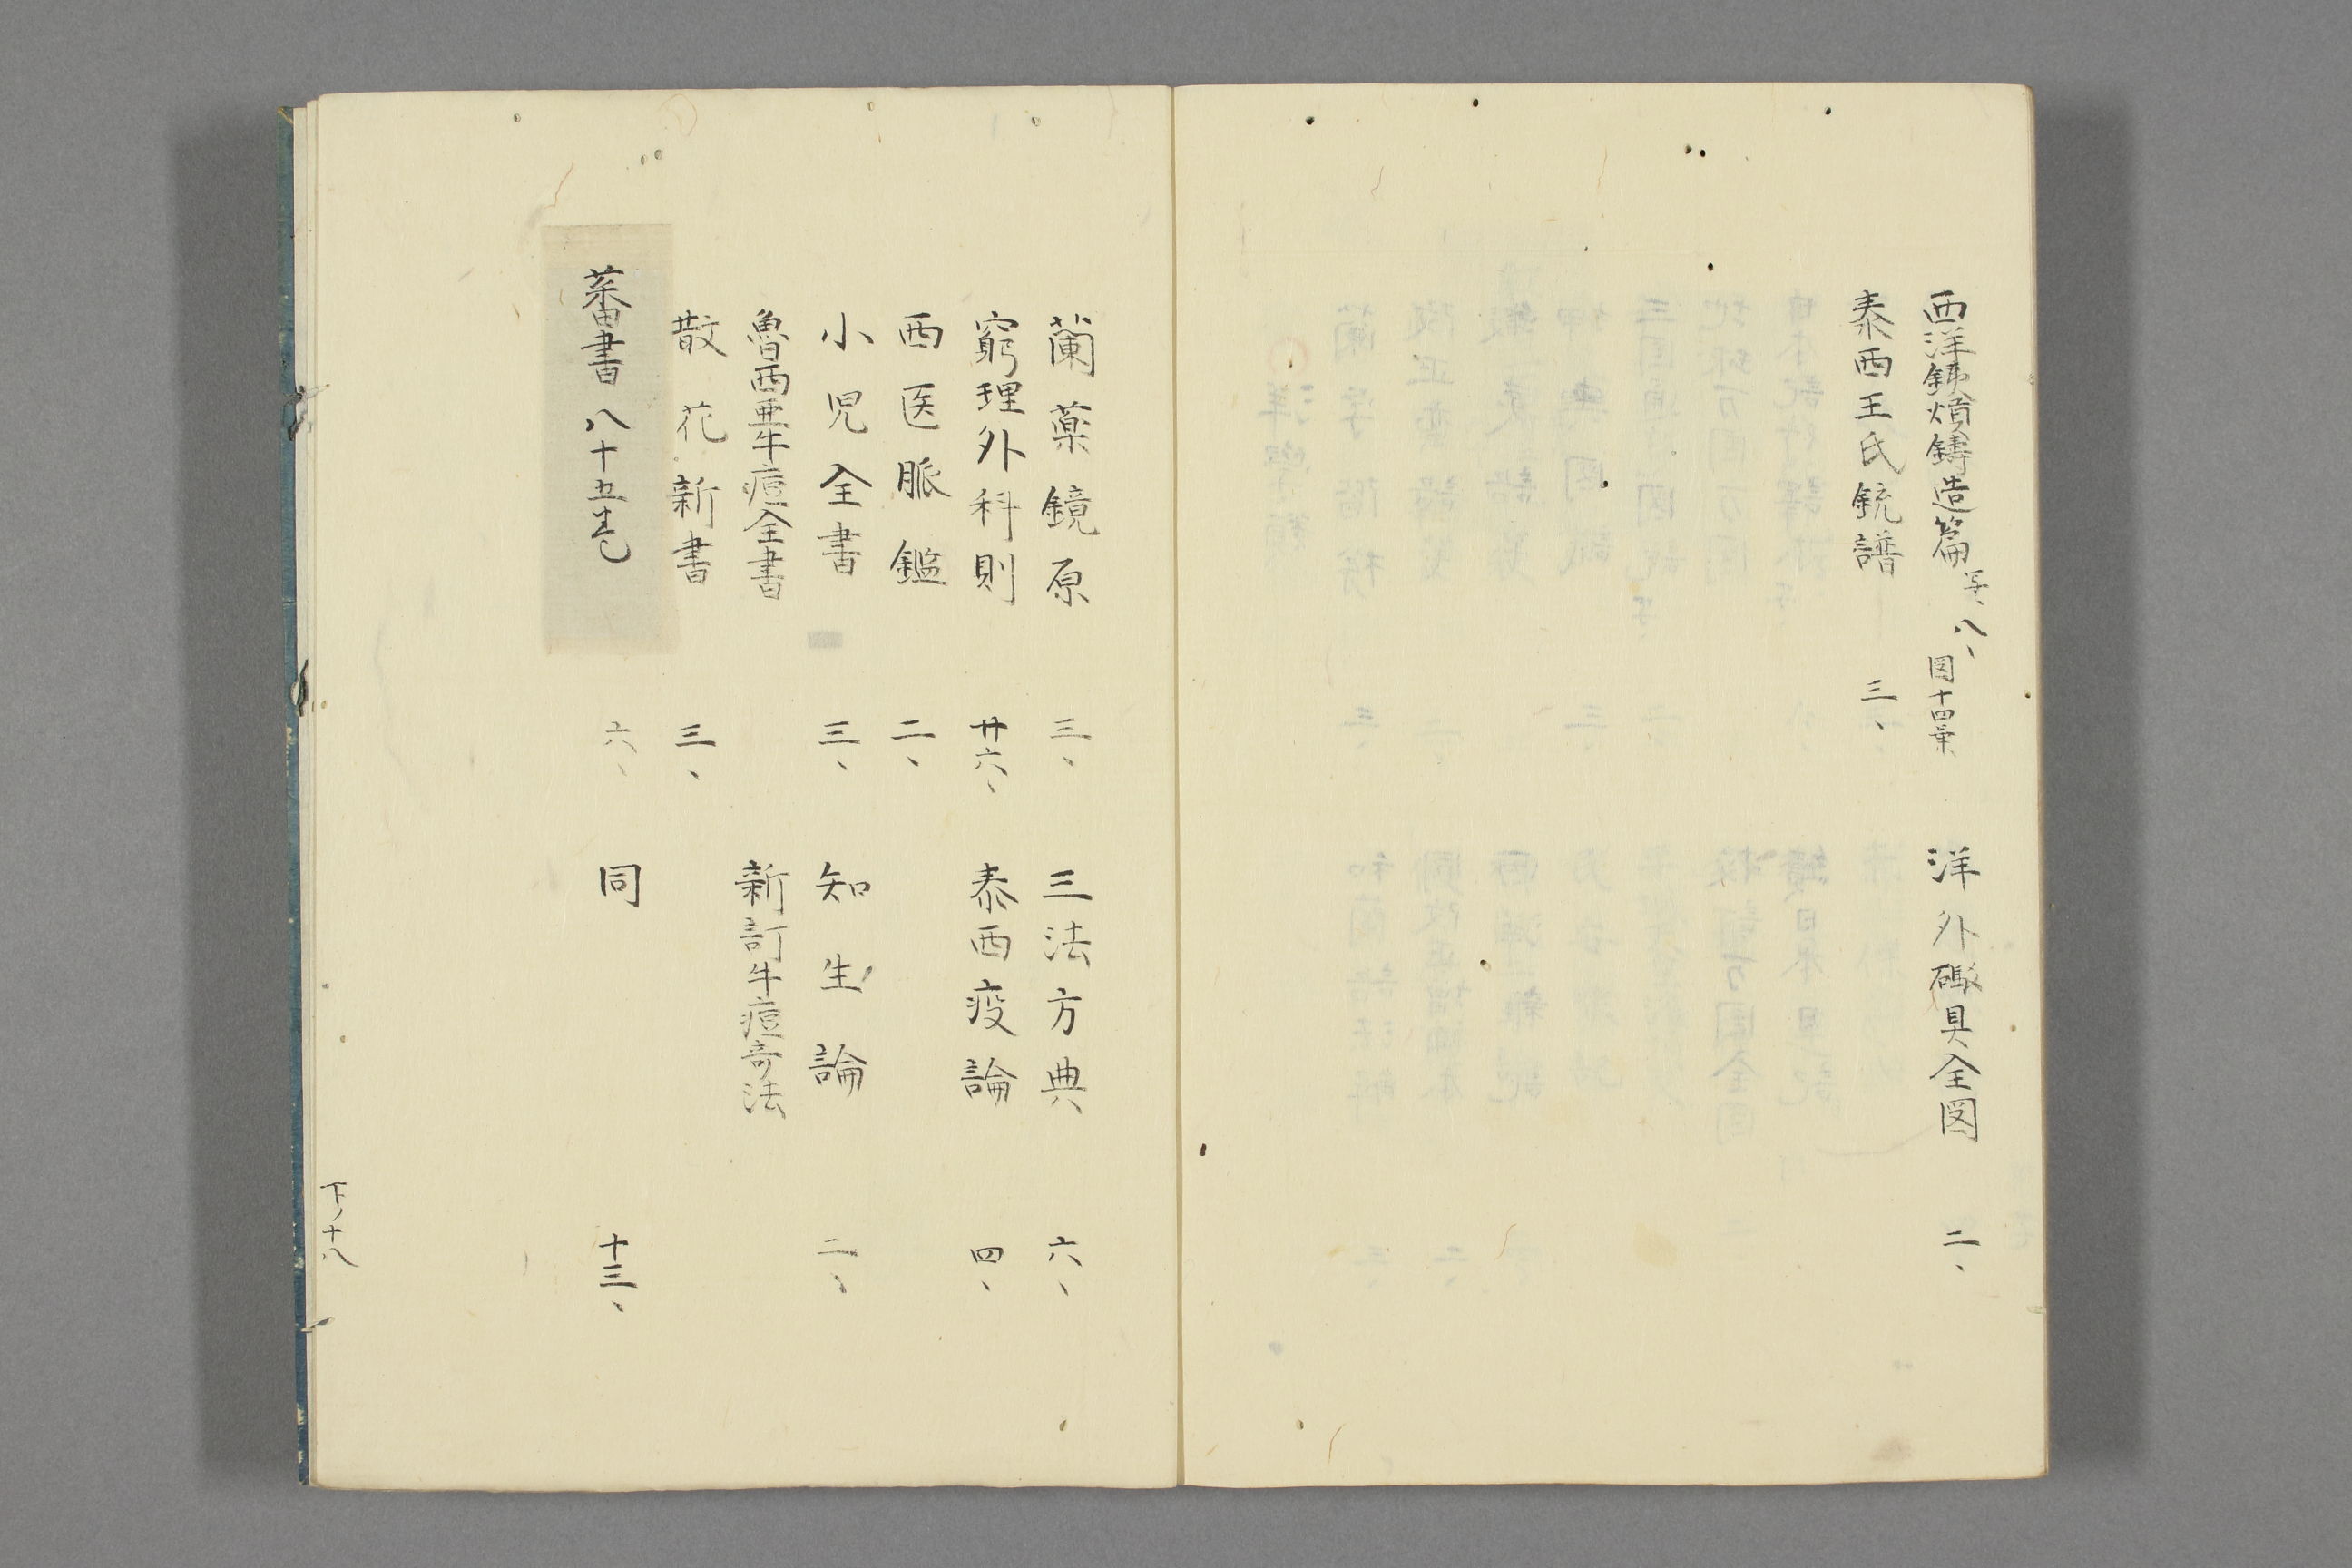 西洋銕熕鋳造篇 写、八、 図十四葉 洋外礟具全図 二、
泰西王氏銃譜 三、
蘭薬鏡原 三、 三法方典 六、
窮理外科則 廿六、 泰西疫論 四、
西医脈鑑 二、
小児全書 三、 知生論 二、
魯西亜牛痘全書 新訂牛痘奇法
散花新書 三、
蕃書 八十五巻 六、 同 十三、
下ノ十八